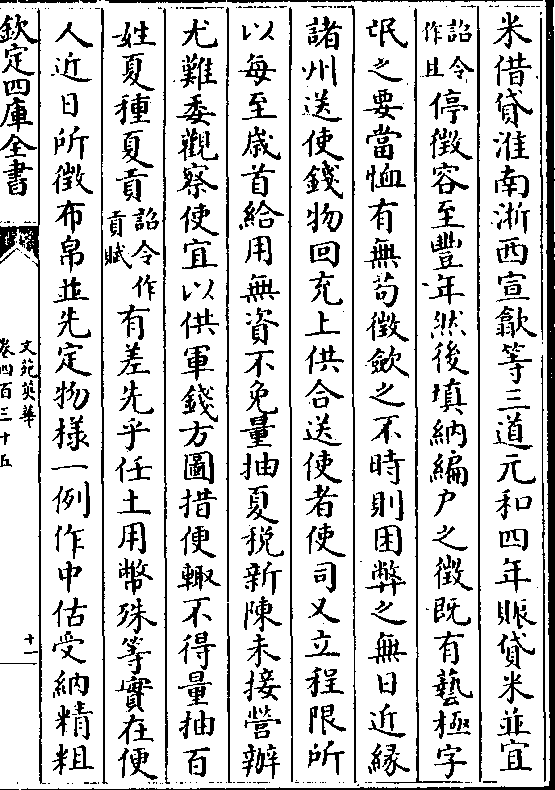 米借貸淮南浙西宣歙等三道元和四年賑貸米並宜
詔令作且停徴容至豐年然後填納編户之徴既有藝極字
氓之要當恤有無苟徴歛之不時則困弊之無日近緣
諸州送使錢物回充上供合送使者使司又立程限所
以每至歳首給用無資不免量抽夏税新陳未接營辦
尤難委觀察使宜以供軍錢方圖措便輙不得量抽百
姓夏種夏貢詔令作貢賦有差先乎任土用幣殊等實在便
人近日所徴布帛並先定物様一例作中估受納精粗
欽定四庫全書
文苑英華
卷四百三十五
十一